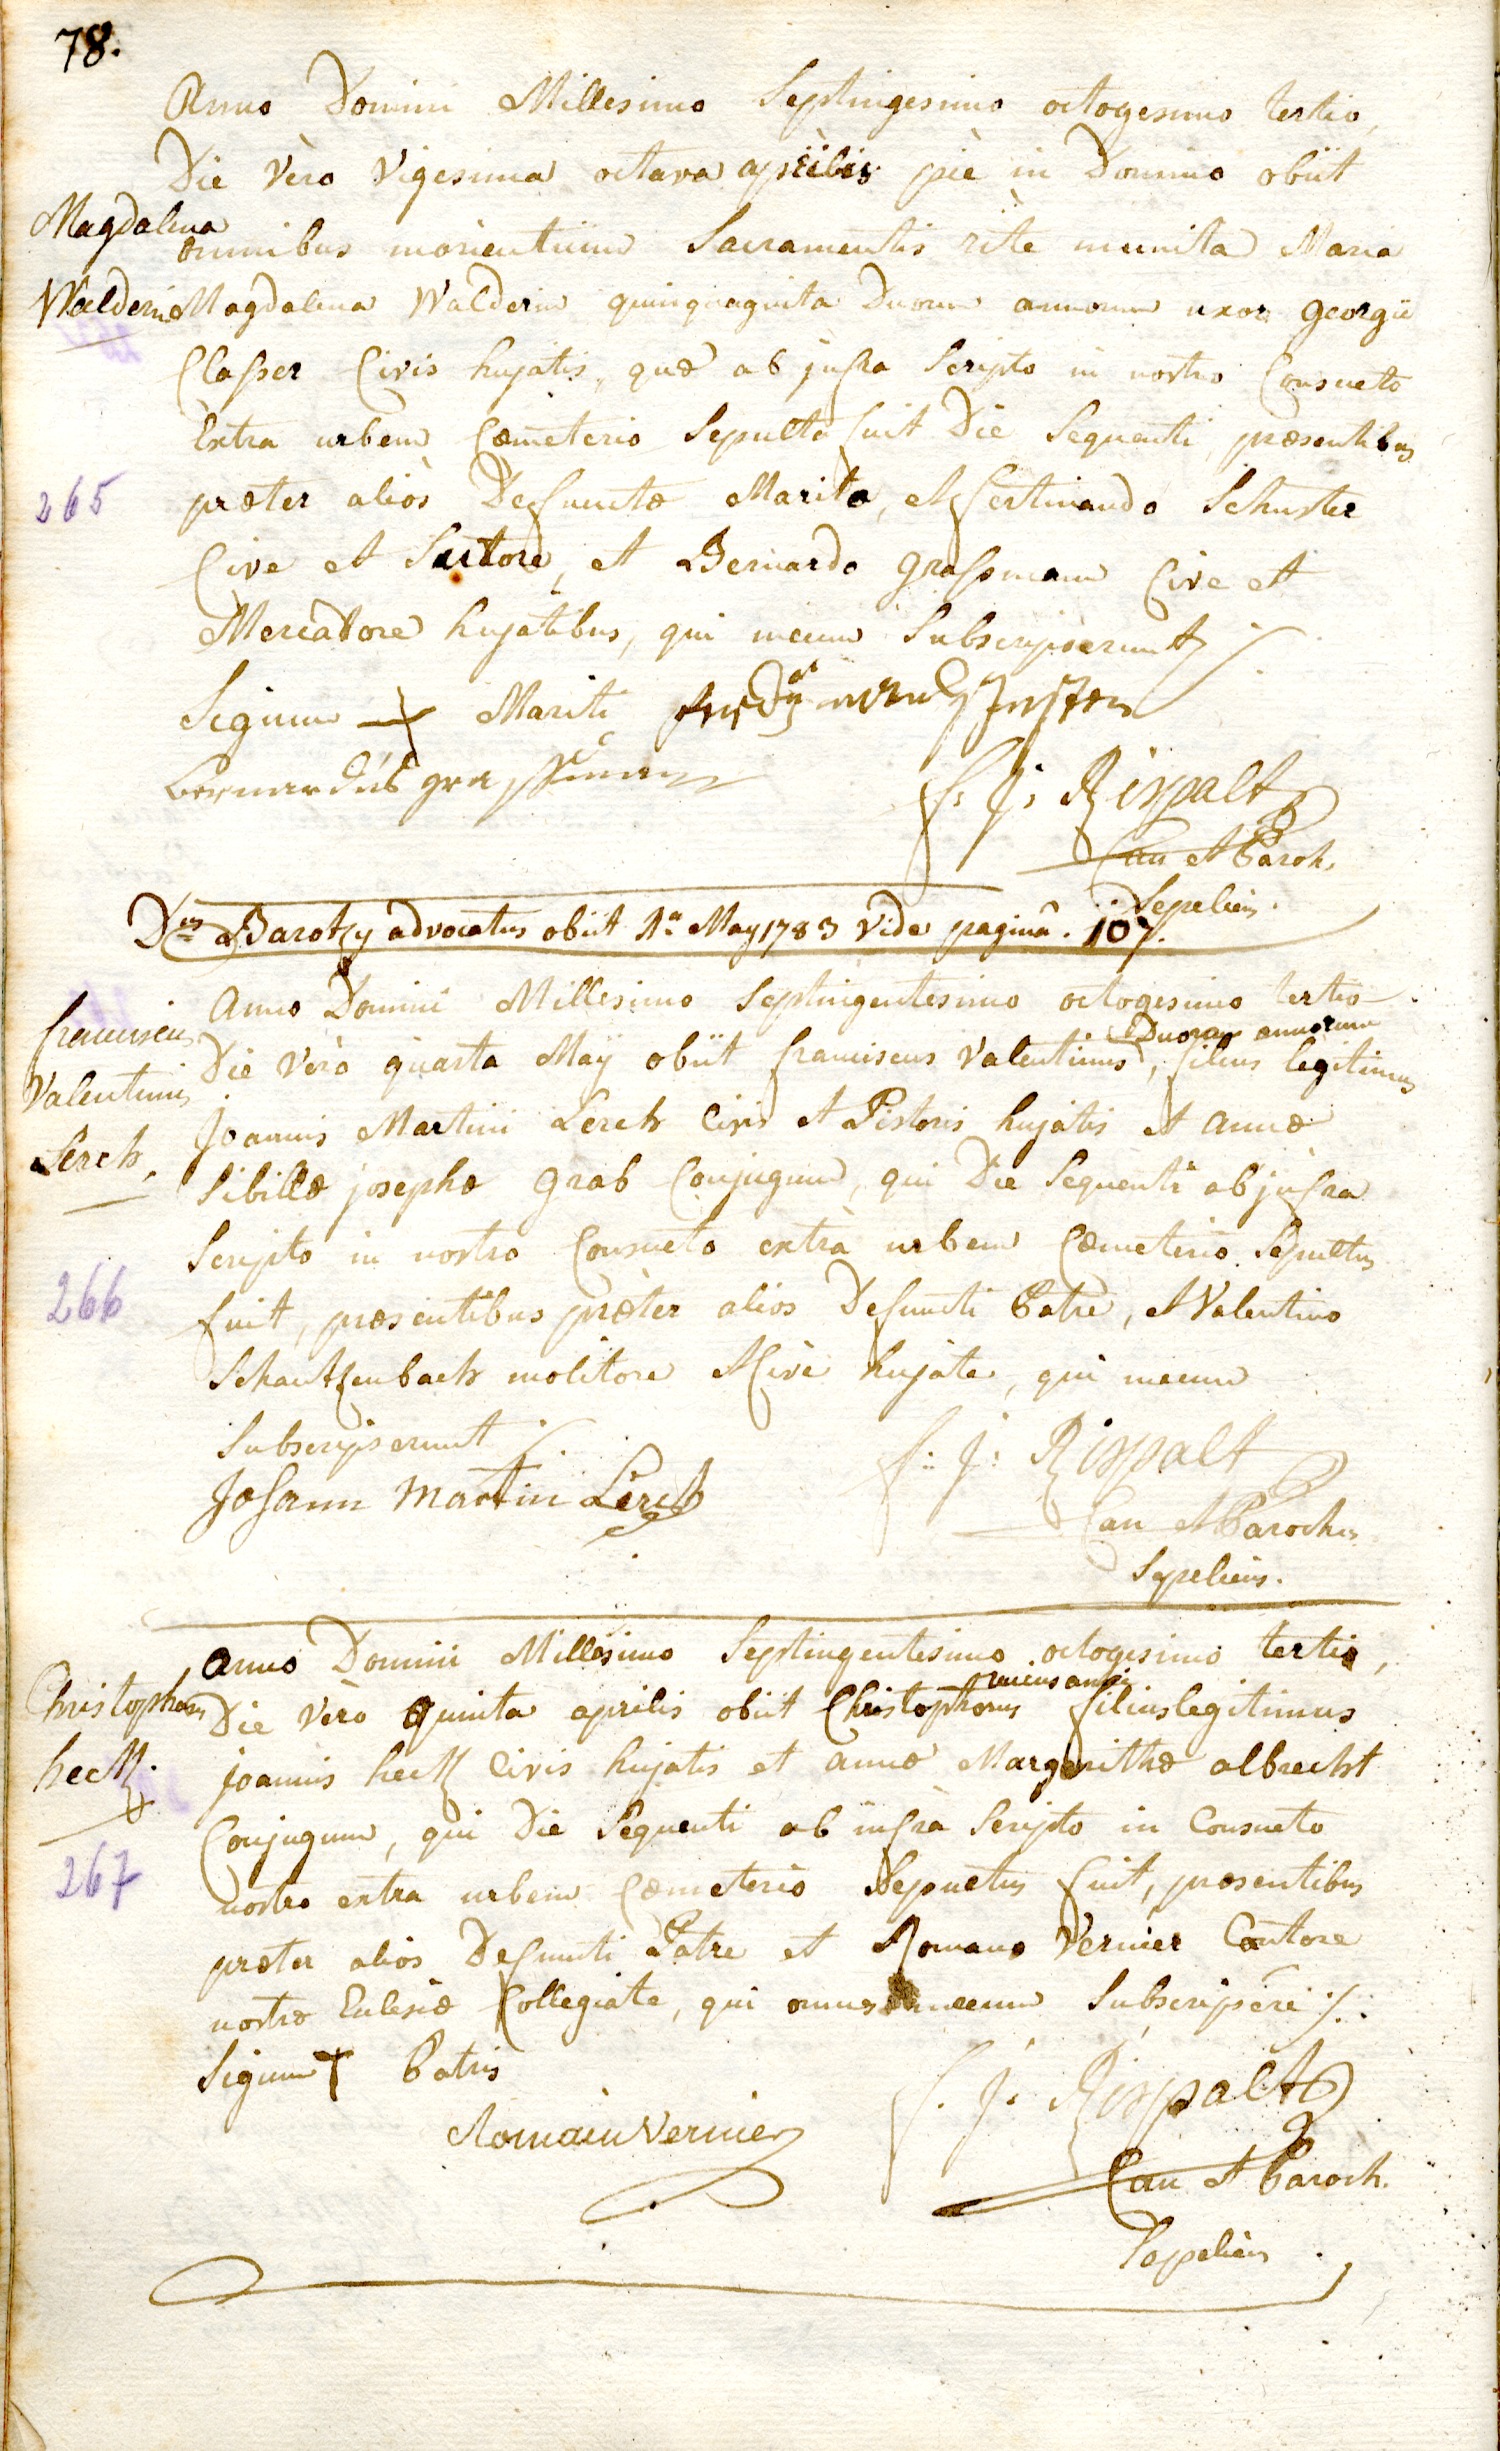 78.
Anno Domini Millesimo Septingesimo octogesimo tertio,
Die Vèro Vigesima octava aprilis piè in Domino obiit
Magdalena
omnibus morientium Sacramentis ritè munita Maria
Walderin
Magdalena Walderin quinquaginta Duorum annorum uxor Georgii
Classer Civis hujatis, quæ ab jnfra Scripto in nostro Consueto
Extra urbem Cœmeterio Sepulta fuit Die Sequenti, præsentibus
265
præter aliòs Defunctæ Marito, et ferdinando Schuster
Cive et Sartore, et Bernardo Grassmann Cive et
Mercatore hujatibus, qui mecum Subscripserunt ·/.
Signum + Mariti
bernardus grassmann
f: J: Rispalt
Can et Paroh.
Sepeliens.
Dnus Barotzy advocatus obiit 1a May 1783 Vide paginâ. 107.
Anno Domini Millesimo Septingentesimo octogesimo tertio.
franciscus
Duorum annorum
Die Vèrò quarta May obiit franciscus Valentinus, filius legitimus
Valentinus
Joannis Martini Lerch Civis et Pistoris hujatis et annæ
Lerch.
Sibillæ josephæ Grab Conjugum, qui Die Sequenti ab jnfra
Scripto in nostro Consueto extrà urbem Cœmeterio Sepultus
266
fuit, præsentibus præter alios Defuncti Patre, et Valentino
Schantzenbach molitore et Cive hujate, qui mecum
Subscripserunt ·/.
Johann Martin Lerch
f: J: Rispalt
Can et Parochus
Sepeliens.
Anno Domini Millesimo Septingentesimo octogesimo tertio,
Christophorus
unius anni
Die Vèrò Quinta aprilis obiit Christophorus filius legitimus
heck.
joannis heck Civis hujatis et annæ Margarithæ albrecht
Conjugum, qui Die Sequenti ab infrà Scripto in Consueto
267
nostro extra urbem Cœmeterio Sepultus fuit, præsentibus
præter aliòs Defuncti Patre et Romano Vernier Cantore
nostræ Eclesiæ Collegiatæ, qui mecum Subscripsere ·/.
Signum + Patris
Romain Vernier
f. J. Rispalt
Can et Paroch.
Sepeliens